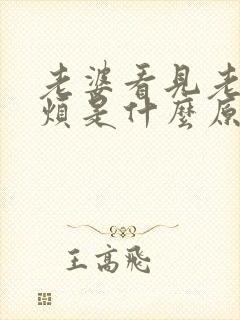 老婆看見老
煩是什麼原
王高飛